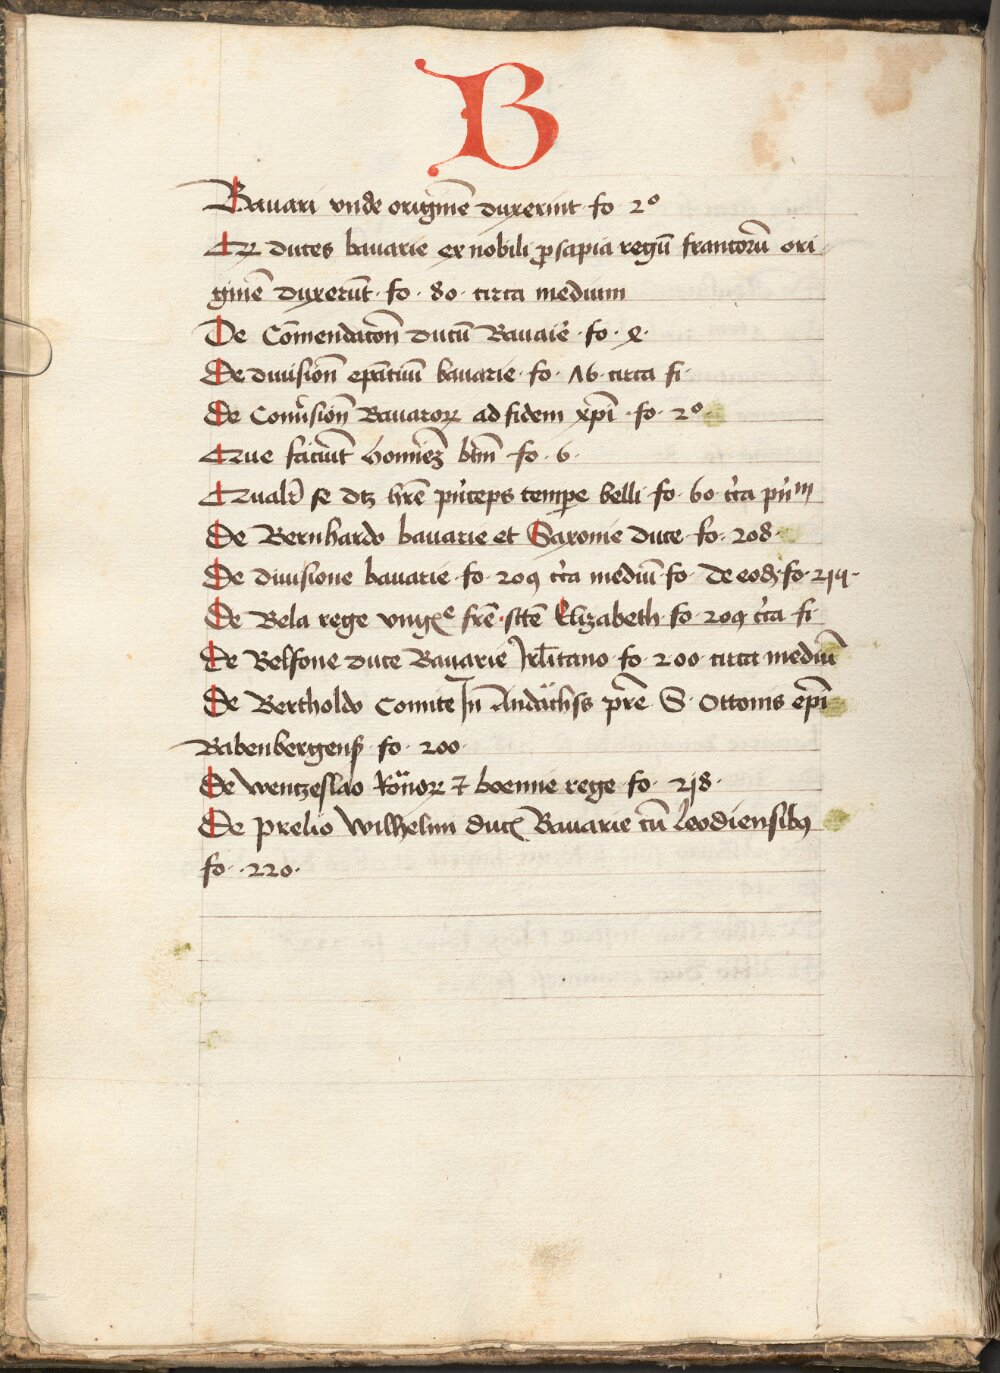 B
Bauari vnde originē duxerint fo 2º
Qꝫ duces bauarie ex nobili ꝓsapia regū francorū ori-
ginē duxerūt · fo · 80 · circa medium
De Cōmendacōn̄ ducū Bauaie᷑ · fo · x ·
De diuision̄ epātuū bauarie · fo · 16 · circa fi ·
De Conu᷑sion̄ Bauaroꝝ ad fidem xp̄i · fo · 2º ·
Que faciūt homīeꝫ bt̄m · fo · 6 ·
Qualit᷑ se dꝫ hr̄e pn᷑ceps temꝑe belli · fo · 60 · cᷓca pn᷑m
De Bernhardo bauarie et Saxonie duce · fo · 208 ·
De diuisione bauarie · fo · 209 cᷓca mediū · fo · De eodꝫ · fo · 214 ·
De Bela rege vngꝫe fr̄e · sct̄e Elizabeth · fo · 209 cᷓca fi ·
De Belfone duce Bauarie fo · 200 · circa mediū
De Bertholdo Comite Jn̄ Andächss pr̄e S · Ottonis ep̄i
Babenbergenꝭ · fo · 200 ·
De wenczeslao Romoꝝ ⁊ boemie rege fo · 218 ·
De prelio Wilhelmi ducꝭ Bauarie cū Leodiensibꝰ
fo · · 220 ·